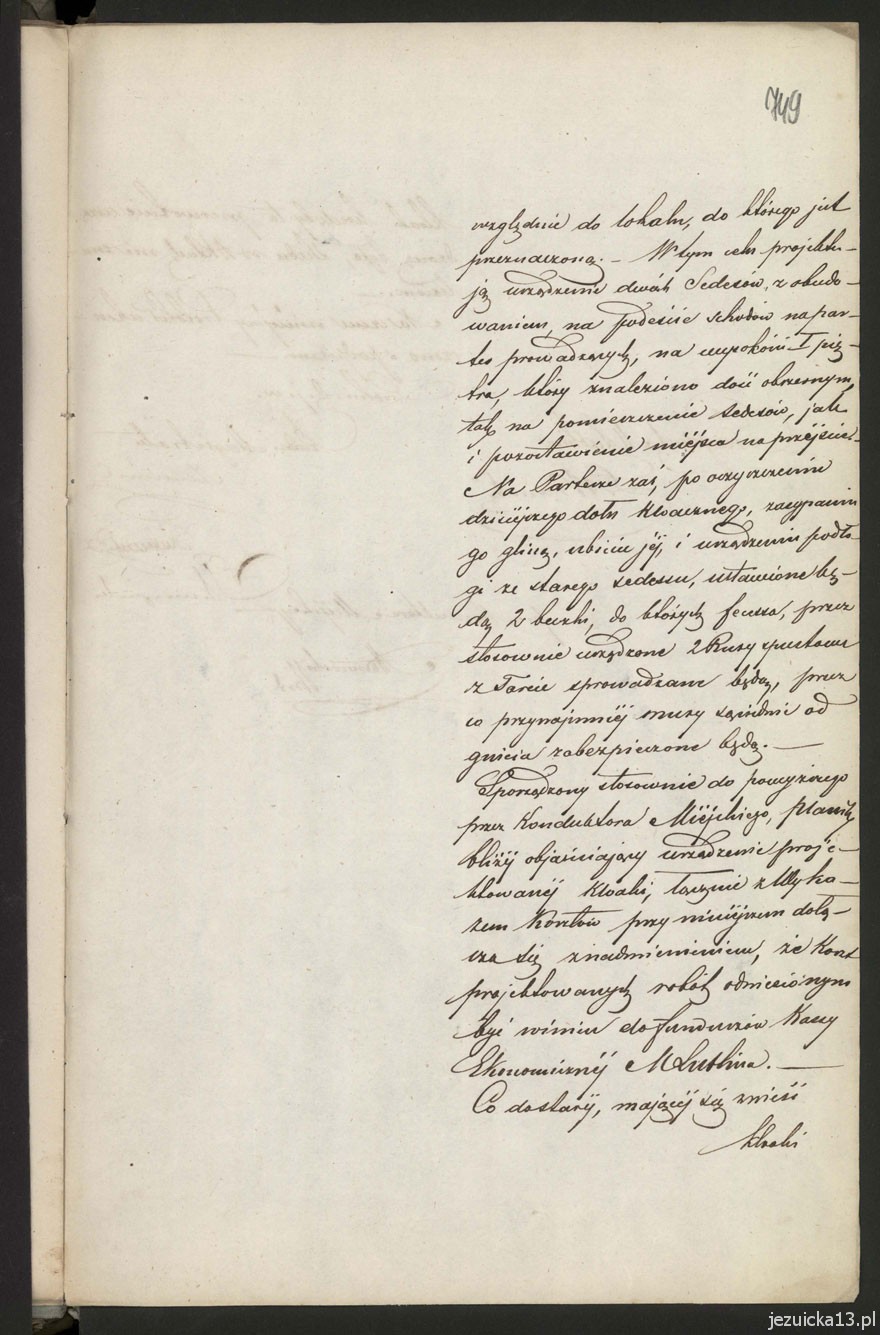 749
względnie do lokalu, do którego jest
przeznaczoną. – W tym celu projektu–
ją urządzenie dwóch Sedesów, z obudo–
waniem, na podeście schodów na par–
ter prowadzących, na wysokości I pię–
tra, który znaleziono dość obszernym,
tak na pomieszczenie sedesów, jak
i pozostawienie miejsca na przejście.
Na Parterze zaś, po oczyszczeniu
dzisiejszego dołu kloacznego, zasypaniu
go gliną, ubiciu jej, i urządzeniu podło–
gi ze starego sedesu, ustawione bę–
dą 2 beczki, do których feces, przez
stosownie urządzone 2 Rury spustowe
z Tarcic sprowadzane będą, przez
co przynajmniej mury sąsiednie od
gnicia zabezpieczone będą. —
Sporządzony stosownie do powyższego
przez Konduktora Miejskiego, Planik
bliżej objaśniający urządzenie proje–
ktowanej Kloaki, łącznie z Wyka–
zem Kosztów przy niniejszem dołą–
cza się z nadmienieniem, że Koszt
projektowanych robót odniesionym
być winien do funduszów Kassy
Ekonomicznej M Lublina. —
Co do starej, mającej się znieść
Kloaki
jezuicka13.pl